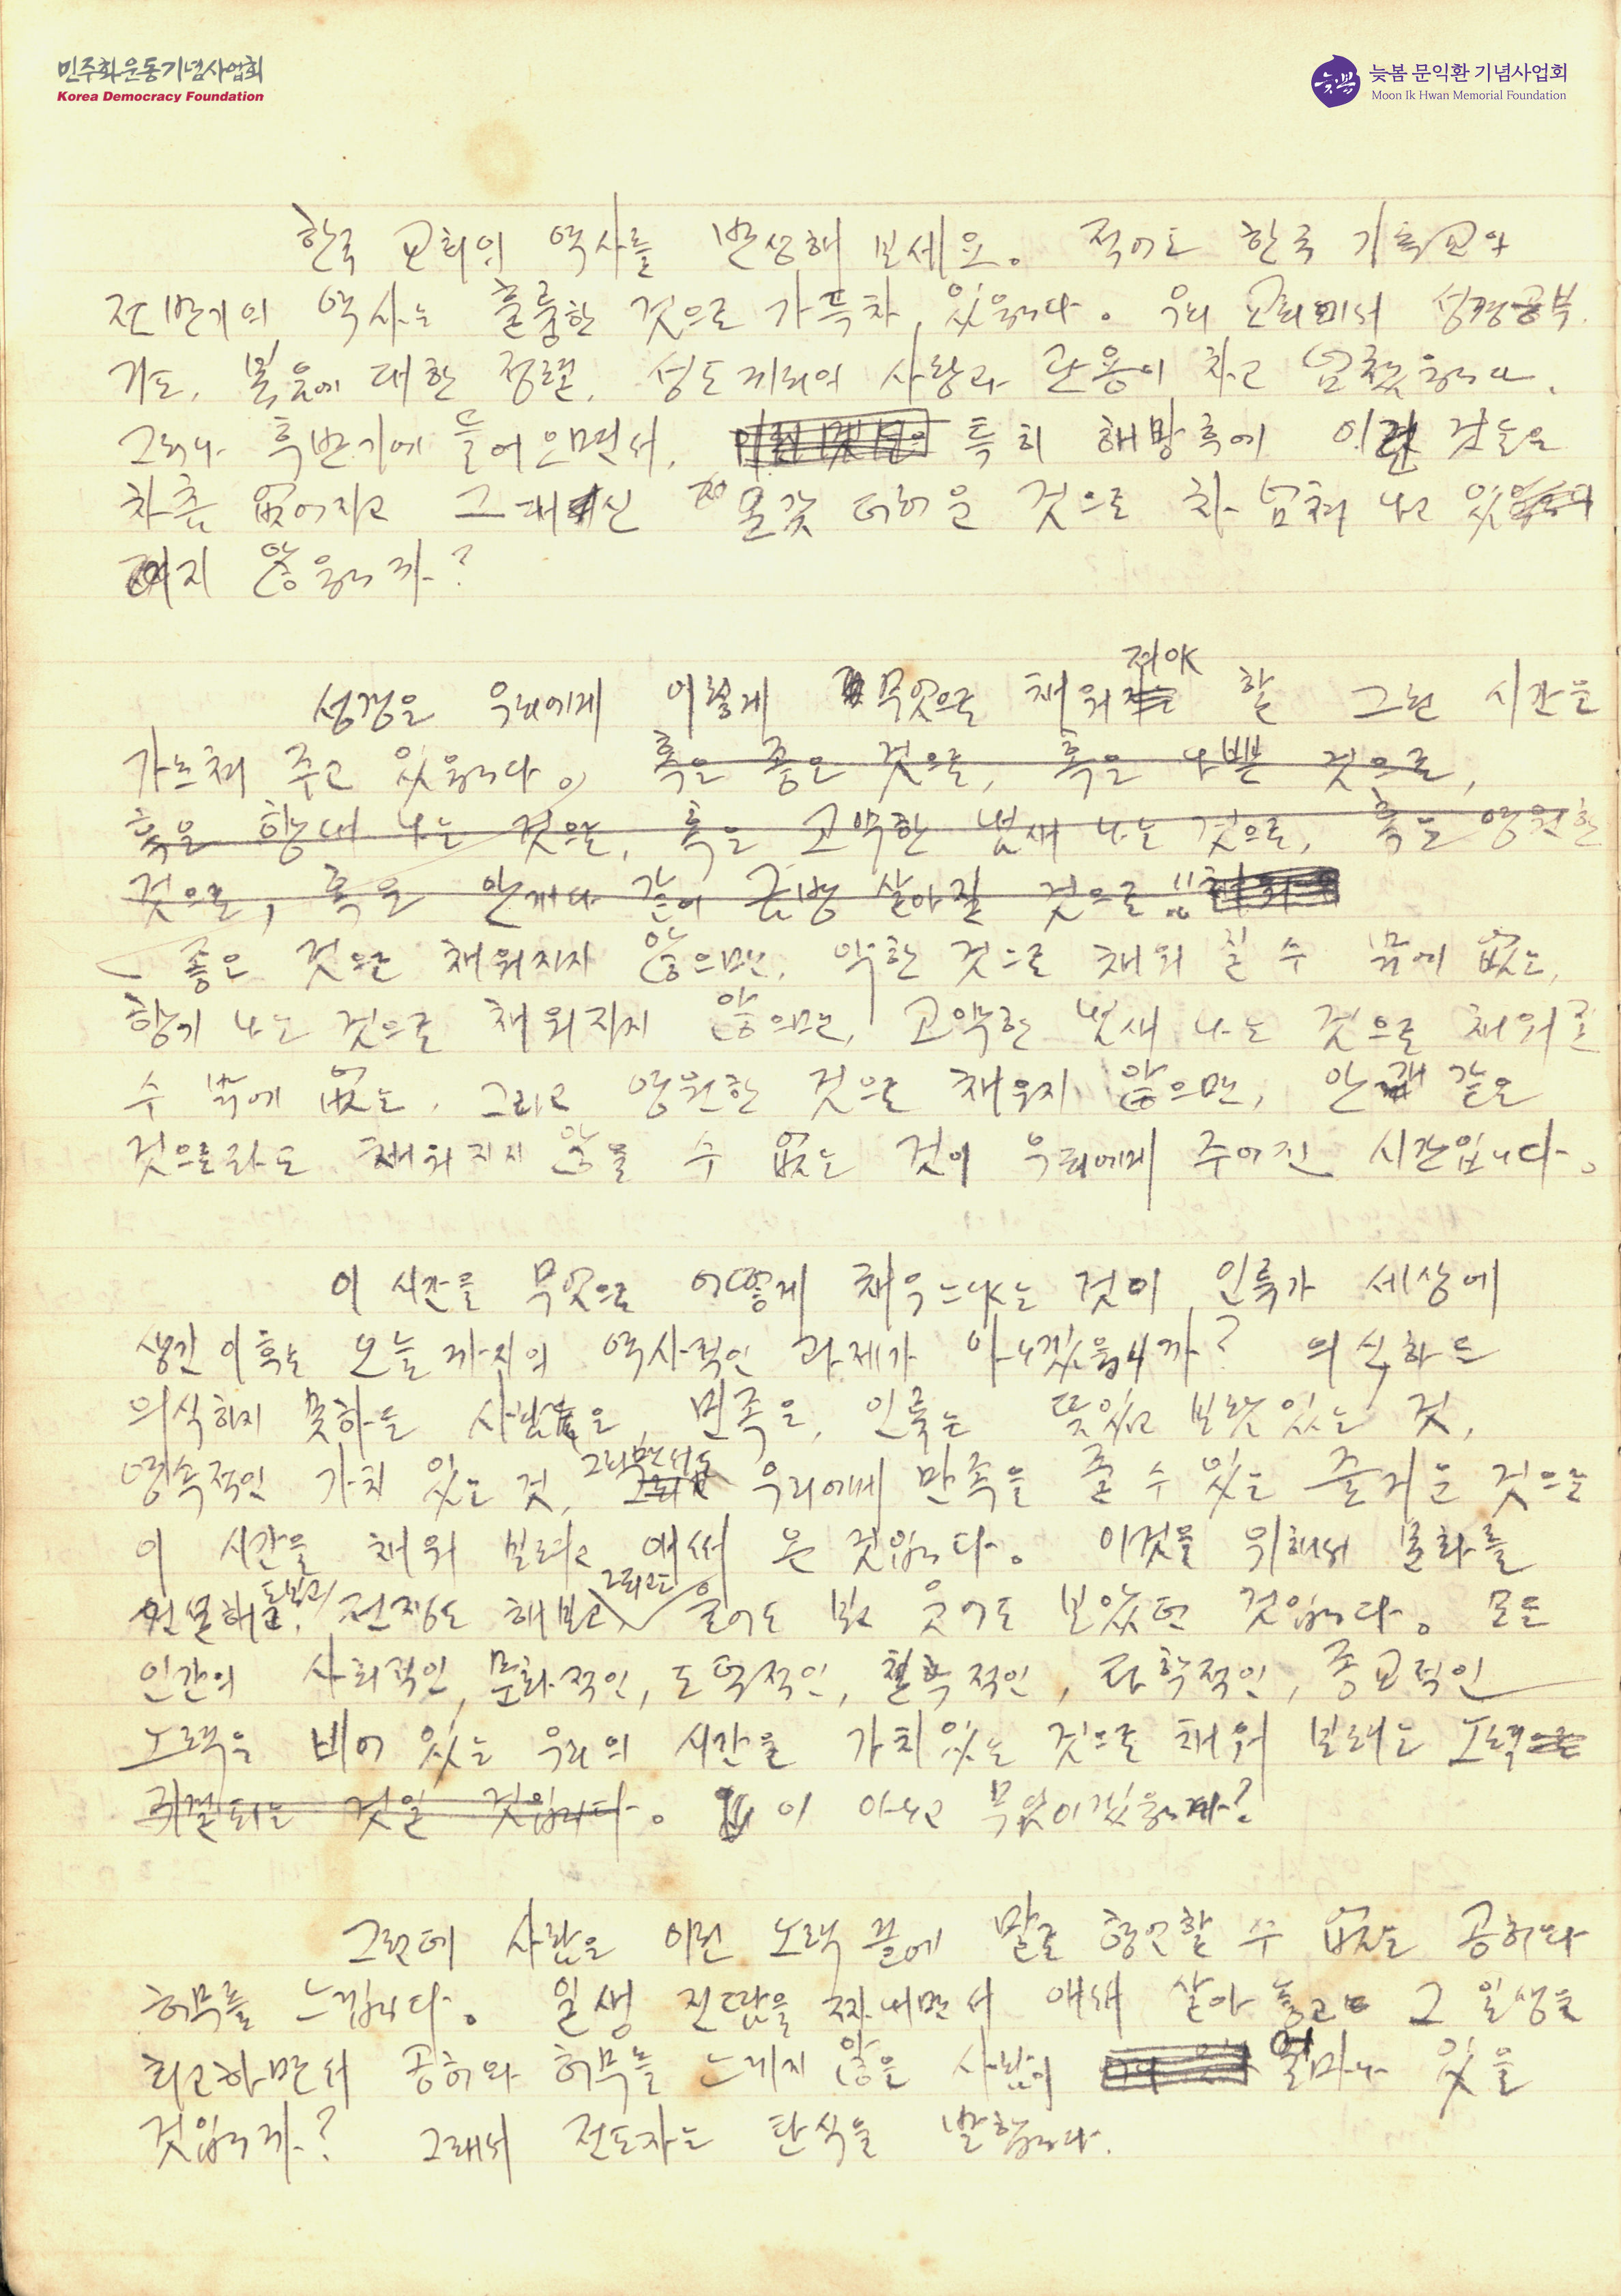 민주화운동기념사업회
Korea Democracy Foundation
늦봄 문익환 기념사업회
Moon Ik Hwan Memorial Foundation
한국 교회의 역사를 반성해 보세요. 적어도 한국 기독교의
전반기의 역사는 훌륭한 것으로 가득차 있읍니다. 우리 교회에서 성경공부
기도, 복음에 대한 정열, 성도끼리의 사랑과 관용이 차고 넘쳤읍니다.
그러나 후반기에 들어오면서, 특히 해방후에 이런 것들은
차츰 없어지고 그대신 온갖 더러운 것으로 차 넘쳐 나고 있
지 않읍니까?
성경은 우리에게 이렇게 무엇으로 채워져야 할 그런 시간을
가르쳐 주고 있읍니다. 혹은 좋은 것으로, 혹은 나쁜 것으로,
혹은 향내 나는 것으로, 혹은 고약한 냄새 나는 것으로, 혹은 영원한
것으로, 혹은 안개와 같이 금방 살아질 것으로
좋은 것으로 채워지지 않으면, 악한 것으로 채워 질 수 밖에 없는,
향기 나는 것으로 채워지지 않으면, 고약한 냄새 나는 것으로 채워질
수 밖에 없는, 그리고 영원한 것으로 채우지 않으면, 안개 같은
것으로라도 채워지지 않을 수 없는 것이 우리에게 주어진 시간입니다.
이 시간을 무엇으로 어떻게 채우느냐는 것이 인류가 세상에
생긴 이후로 오늘까지의 역사적인 과제가 아니겠읍니까? 의식하든
의식하지 못하든 사람들은, 민족은, 인류는 뜻있고 보람있는 것,
영속적인 가치 있는 것, 그러면서도 우리에게 만족을 줄 수 있는 즐거운 것으로
이 시간을 채워 보려고 애써 온 것입니다. 이것을 위해서 문화를
건설해도 보고, 전쟁도 해보고 그리고는 울어도 보고 웃어도 보았던 것입니다. 모든
인간의 사회적인, 문화적인, 도덕적인, 철학적인, 과학적인, 종교적인
노력은 비어 있는 우리의 시간을 가치있는 것으로 채워 보려는 노력으로
귀결되는 것일 것입니다. 이 아니고 무엇이겠읍니까?
그런데 사람은 이런 노력 끝에 말로 형언할 수 없는 공허와
허무를 느낍니다. 일생 진땀을 짜내면서 애써 살아 놓고는 그 일생을
회고하면서 공허와 허무를 느끼지 않을 사람이 얼마나 있을
것입니까? 그래서 전도자는 탄식을 발합니다.